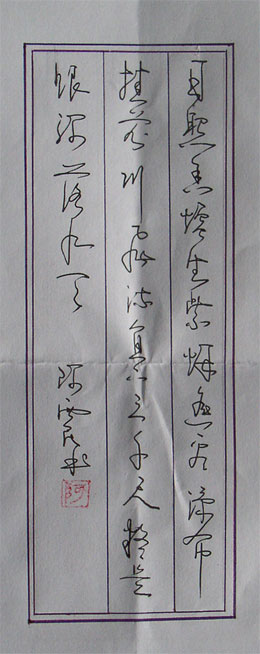 日照香爐生紫烟遥看瀑布
挂前川飞流直下三千尺疑是
银河落九天 阿霞书
阿